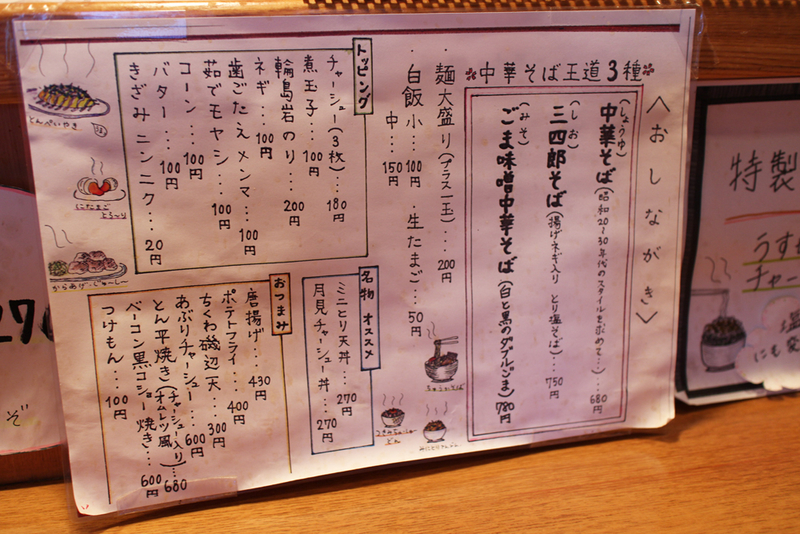 〈おしながき〉
中華そば王道3種
(しょうゆ)
中華そば(昭和20〜30年代のスタイルを求めて…)…680円
(しお)
三四郎そば(揚げネギ入り とり塩そば)…750円
(みそ)
ごま味噌中華そば(白と黒のダブルごま)780円
・麺大盛り(プラス一玉)…200円
・白飯 小…100円 ・生たまご…50円
中…150円
トッピング
チャーシュー(3枚)…180円
煮玉子…100円
輪島岩のり…200円
ネギ…100円
歯ごたえメンマ…100円
茹でモヤシ…100円
コーン…100円
バター…100円
きざみニンニク…20円
名物 オススメ
ミニとり天丼…270円
月見チャーシュー丼…270円
おつまみ
唐揚げ…430円
ポテトフライ…400円
ちくわ磯辺天…300円
あぶりチャーシュー…600円
とん平焼き(チャーシュー入りオムレツ風)…680円
ベーコン黒コショー焼き…600円
つけもん…100円
とんぺいやき
にたまご
とろ〜り
からあげ・じゅーしー
ちゅうかそば
どん
特製
うす
チャー
塩
にも変
270
ぞ